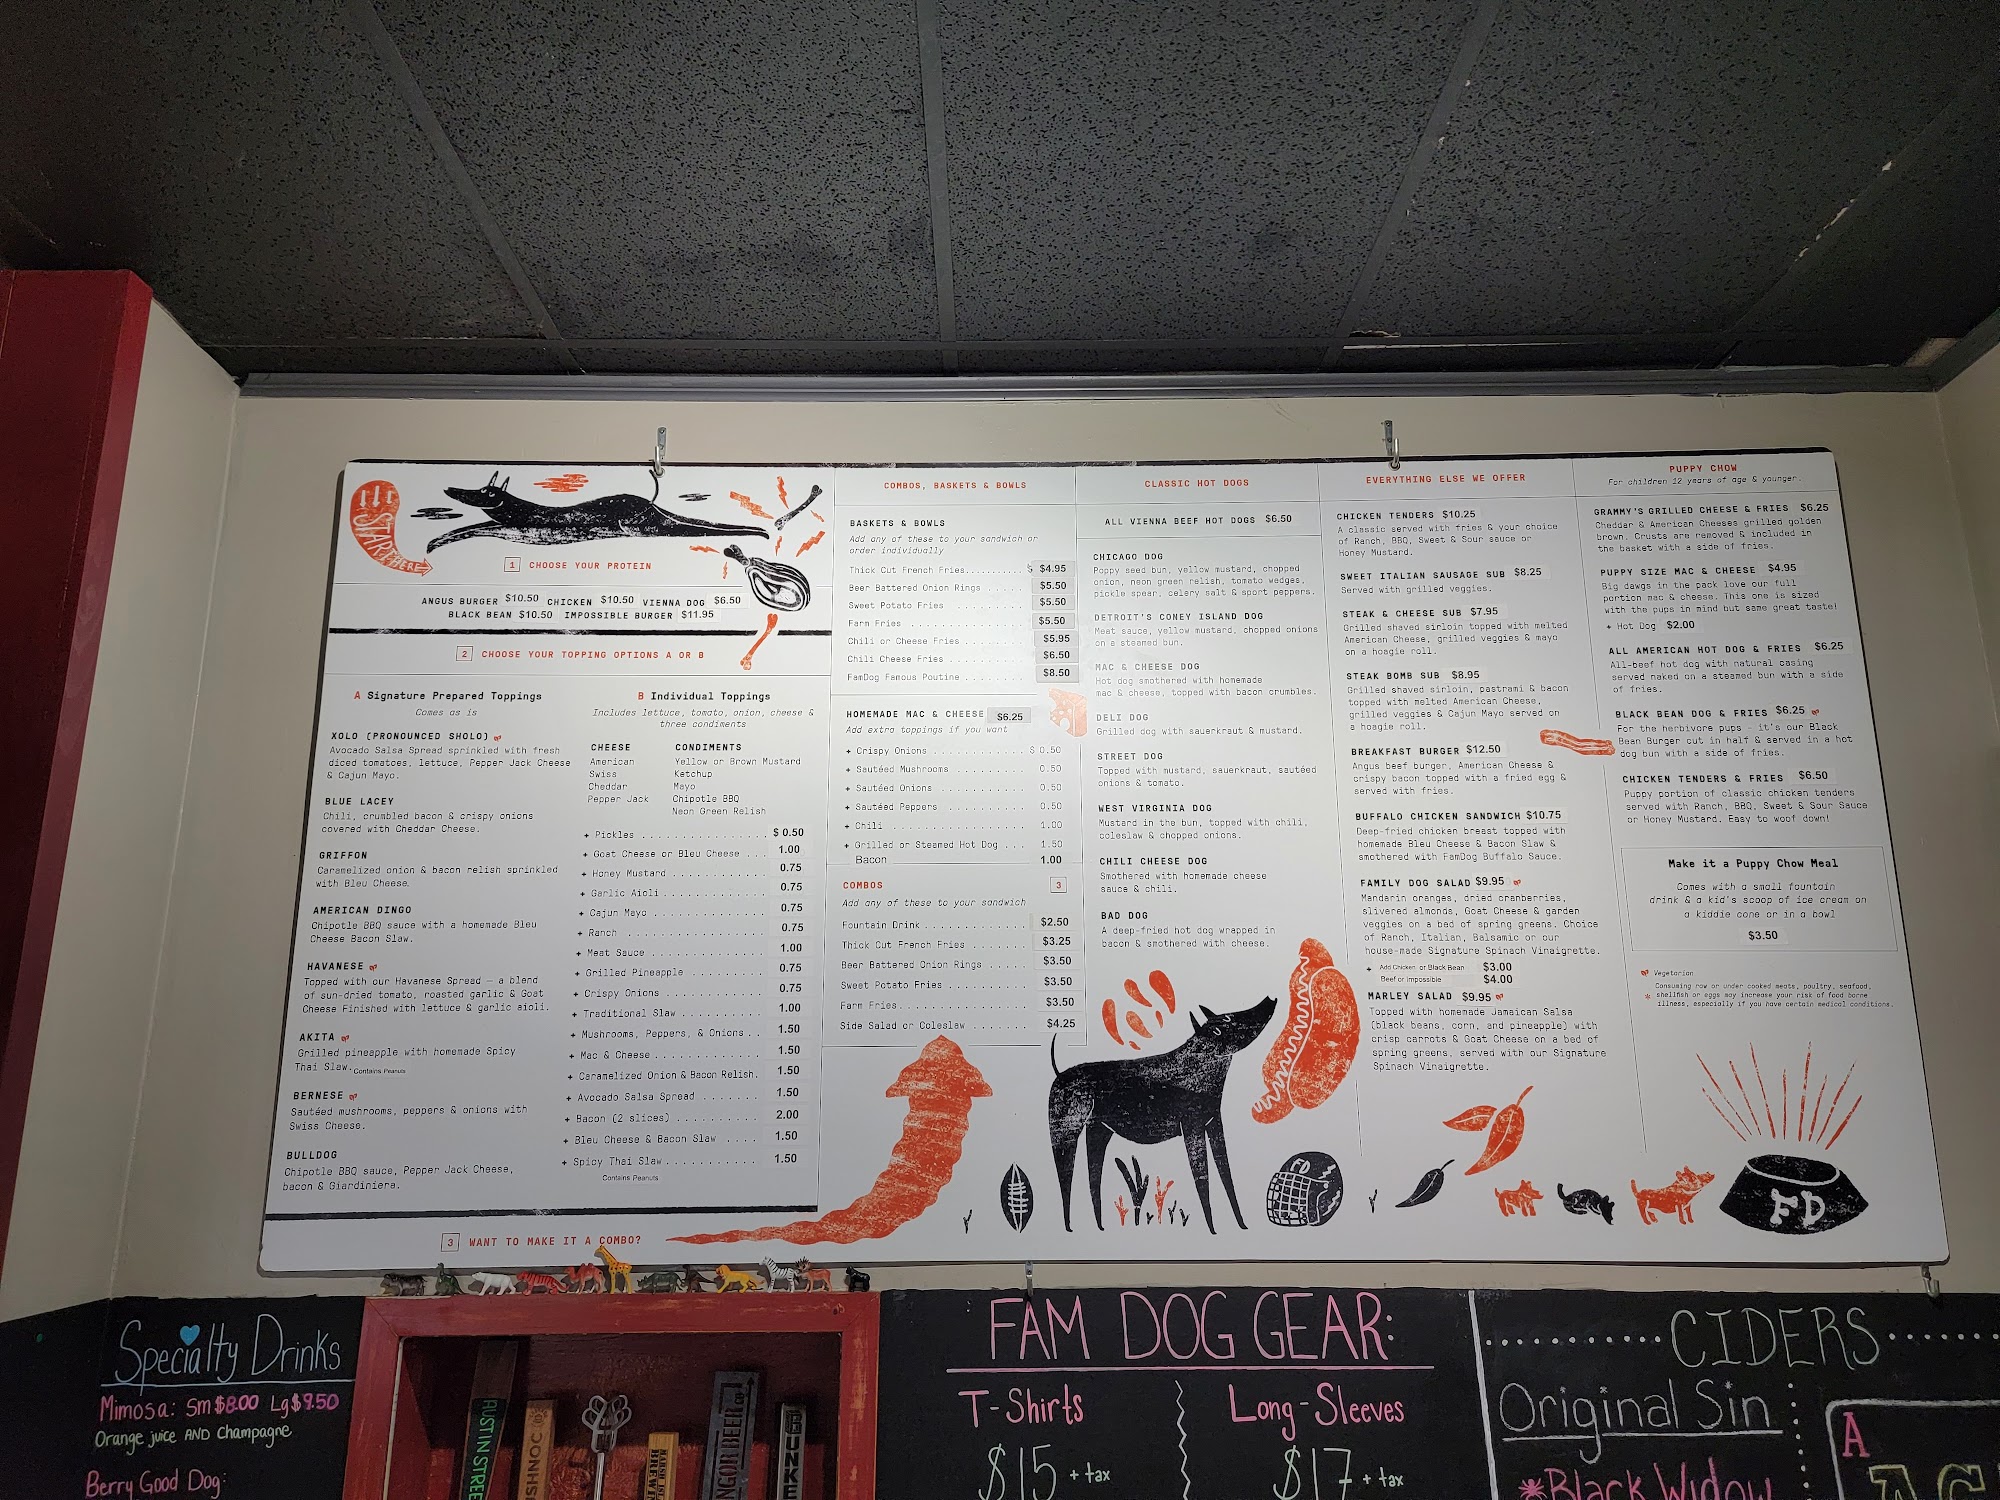 START HERE
1 CHOOSE YOUR PROTEIN
ANGUS BURGER $10.50 CHICKEN $10.50 VIENNA DOG $6.50
BLACK BEAN $10.50 IMPOSSIBLE BURGER $11.95
2 CHOOSE YOUR TOPPING OPTIONS A OR B
A Signature Prepared Toppings
Comes as is
XOLO (PRONOUNCED SHOLO)
Avocado Salsa Spread sprinkled with fresh
diced tomatoes, lettuce, Pepper Jack Cheese
& Cajun Mayo.
BLUE LACEY
Chili, crumbled bacon & crispy onions
covered with Cheddar Cheese.
GRIFFON
Caramelized onion & bacon relish sprinkled
with Bleu Cheese.
AMERICAN DINGO
Chipotle BBQ sauce with a homemade Bleu
Cheese Bacon Slaw.
HAVANESE
Topped with our Havanese Spread – a blend
of sun-dried tomato, roasted garlic & Goat
Cheese Finished with lettuce & garlic aioli.
AKITA
Grilled pineapple with homemade Spicy
Thai Slaw. Contains Peanuts
BERNESE
Sautéed mushrooms, peppers & onions with
Swiss Cheese.
BULLDOG
Chipotle BBQ sauce, Pepper Jack Cheese,
bacon & Giardiniera.
B Individual Toppings
Includes lettuce, tomato, onion, cheese &
three condiments
CHEESE
American
Swiss
Cheddar
Pepper Jack
CONDIMENTS
Yellow or Brown Mustard
Ketchup
Mayo
Chipotle BBQ
Neon Green Relish
+ Pickles ................ $ 0.50
+ Goat Cheese or Bleu Cheese ... 1.00
+ Honey Mustard ............ 0.75
+ Garlic Aioli ............. 0.75
+ Cajun Mayo .............. 0.75
+ Ranch ................. 0.75
+ Meat Sauce .............. 1.00
+ Grilled Pineapple .......... 0.75
+ Crispy Onions ............ 0.75
+ Traditional Slaw ........... 1.00
+ Mushrooms, Peppers, & Onions .. 1.50
+ Mac & Cheese ............. 1.50
+ Caramelized Onion & Bacon Relish. 1.50
+ Avocado Salsa Spread ....... 1.50
+ Bacon (2 slices) .......... 2.00
+ Bleu Cheese & Bacon Slaw .... 1.50
+ Spicy Thai Slaw ........... 1.50
Contains Peanuts
3 WANT TO MAKE IT A COMBO?
COMBOS, BASKETS & BOWLS
BASKETS & BOWLS
Add any of these to your sandwich or
order individually
Thick Cut French Fries .......... $4.95
Beer Battered Onion Rings ..... $5.50
Sweet Potato Fries ........... $5.50
Farm Fries ............... $5.50
Chili or Cheese Fries ......... $5.95
Chili Cheese Fries .......... $6.50
FamDog Famous Poutine ........ $8.50
HOMEMADE MAC & CHEESE $6.25
Add extra toppings if you want
+ Crispy Onions ............ $ 0.50
+ Sautéed Mushrooms ......... 0.50
+ Sautéed Onions ............ 0.50
+ Sautéed Peppers ........... 0.50
+ Chili ................. 1.00
+ Grilled or Steamed Hot Dog ... 1.50
Bacon 1.00
COMBOS 3
Add any of these to your sandwich
Fountain Drink ............. $2.50
Thick Cut French Fries ........ $3.25
Beer Battered Onion Rings ..... $3.50
Sweet Potato Fries .......... $3.50
Farm Fries ............... $3.50
Side Salad or Coleslaw ....... $4.25
CLASSIC HOT DOGS
ALL VIENNA BEEF HOT DOGS $6.50
CHICAGO DOG
Poppy seed bun, yellow mustard, chopped
onion, neon green relish, tomato wedges,
pickle spear, celery salt & sport peppers.
DETROIT'S CONEY ISLAND DOG
Meat sauce, yellow mustard, chopped onions
on a steamed bun.
MAC & CHEESE DOG
Hot dog smothered with homemade
mac & cheese, topped with bacon crumbles.
DELI DOG
Grilled dog with sauerkraut & mustard.
STREET DOG
Topped with mustard, sauerkraut, sautéed
onions & tomato.
WEST VIRGINIA DOG
Mustard in the bun, topped with chili,
coleslaw & chopped onions.
CHILI CHEESE DOG
Smothered with homemade cheese
sauce & chili.
BAD DOG
A deep-fried hot dog wrapped in
bacon & smothered with cheese.
EVERYTHING ELSE WE OFFER
CHICKEN TENDERS $10.25
A classic served with fries & your choice
of Ranch, BBQ, Sweet & Sour sauce or
Honey Mustard.
SWEET ITALIAN SAUSAGE SUB $8.25
Served with grilled veggies.
STEAK & CHEESE SUB $7.95
Grilled shaved sirloin topped with melted
American Cheese, grilled veggies & mayo
on a hoagie roll.
STEAK BOMB SUB $8.95
Grilled shaved sirloin, pastrami & bacon
topped with melted American Cheese,
grilled veggies & Cajun Mayo served on
a hoagie roll.
BREAKFAST BURGER $12.50
Angus beef burger, American Cheese &
crispy bacon topped with a fried egg &
served with fries.
BUFFALO CHICKEN SANDWICH $10.75
Deep-fried chicken breast topped with
homemade Bleu Cheese & Bacon Slaw &
smothered with FamDog Buffalo Sauce.
FAMILY DOG SALAD $9.95
Mandarin oranges, dried cranberries,
slivered almonds, Goat Cheese & garden
veggies on a bed of spring greens. Choice
of Ranch, Italian, Balsamic or our
house-made Signature Spinach Vinaigrette.
+ Add Chicken or Black Bean $3.00
Beef or Impossible $4.00
MARLEY SALAD $9.95
Topped with homemade Jamaican Salsa
(black beans, corn, and pineapple) with
crisp carrots & Goat Cheese on a bed of
spring greens, served with our Signature
Spinach Vinaigrette.
PUPPY CHOW
For children 12 years of age & younger.
GRAMMY'S GRILLED CHEESE & FRIES $6.25
Cheddar & American Cheeses grilled golden
brown. Crusts are removed & included in
the basket with a side of fries.
PUPPY SIZE MAC & CHEESE $4.95
Big dawgs in the pack love our full
portion mac & cheese. This one is sized
with the pups in mind but same great taste!
+ Hot Dog $2.00
ALL AMERICAN HOT DOG & FRIES $6.25
All-beef hot dog with natural casing
served naked on a steamed bun with a side
of fries.
BLACK BEAN DOG & FRIES $6.25
For the herbivore pups – it's our Black
Bean Burger cut in half & served in a hot
dog bun with a side of fries.
CHICKEN TENDERS & FRIES $6.50
Puppy portion of classic chicken tenders
served with Ranch, BBQ, Sweet & Sour Sauce
or Honey Mustard. Easy to woof down!
Make it a Puppy Chow Meal
Comes with a small fountain
drink & a kid's scoop of ice cream on
a kiddie cone or in a bowl
$3.50
Vegetarian
Consuming raw or under cooked meats, poultry, seafood,
* shellfish or eggs may increase your risk of food borne
illness, especially if you have certain medical conditions.
FD
FD
Specialty Drinks
Mimosa: Sm $8.00 Lg $9.50
Orange juice AND Champagne
Berry Good Dog:
AUSTIN STREET
FAM DOG GEAR:
T-Shirts
$15 + tax
Long-Sleeves
$17 + tax
CIDERS
Original Sin
*Black Widow
A